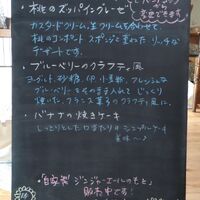 できます
・桃のズッパイングレーゼ
カスタードクリーム、生クリームを合わせて、
桃のコンポート スポンジと重ねた リッチな
デザートです。
・ブルーベリーのクラフティ風
ヨーグルト、砂糖、卵、小麦粉、フレッシュな
ブルーベリーを
フランス菓子のクラフティ風に
・バナナの焼きケーキ
しっとりとした
美味〜♪
・"自家製 ジンジャーエールのもと"
販売中です!